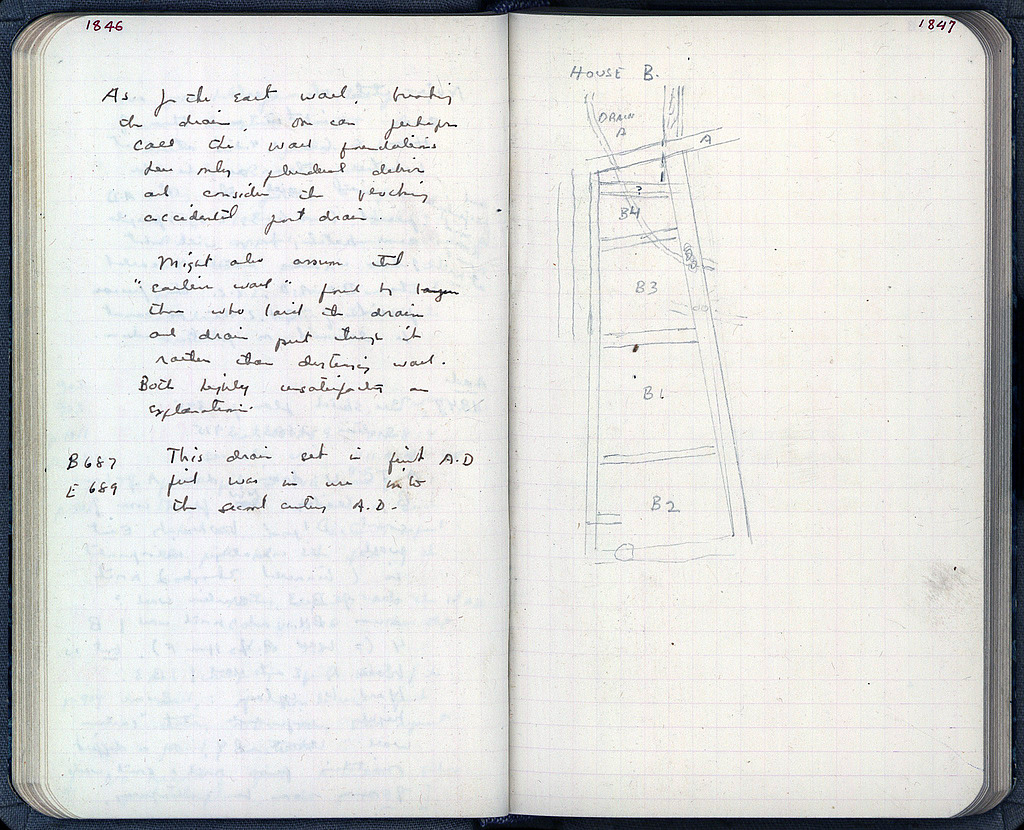 1846
As for the east wall, breaking
the drain, one can perhaps
call the wall foundations
here only debris
and consider the blocking
accidental post drain
Might also assume that
"earlier wall" found by
those who laid the drain
and drain put through it
rather than destroying wall.
Both highly unsatisfactory as
explanation.
B 687
E 689
This drain set in first A.D
but was in use into
the second century A.D.
1847
HOUSE B.
DRAIN
A
A
?
B4
B3
B1
B2